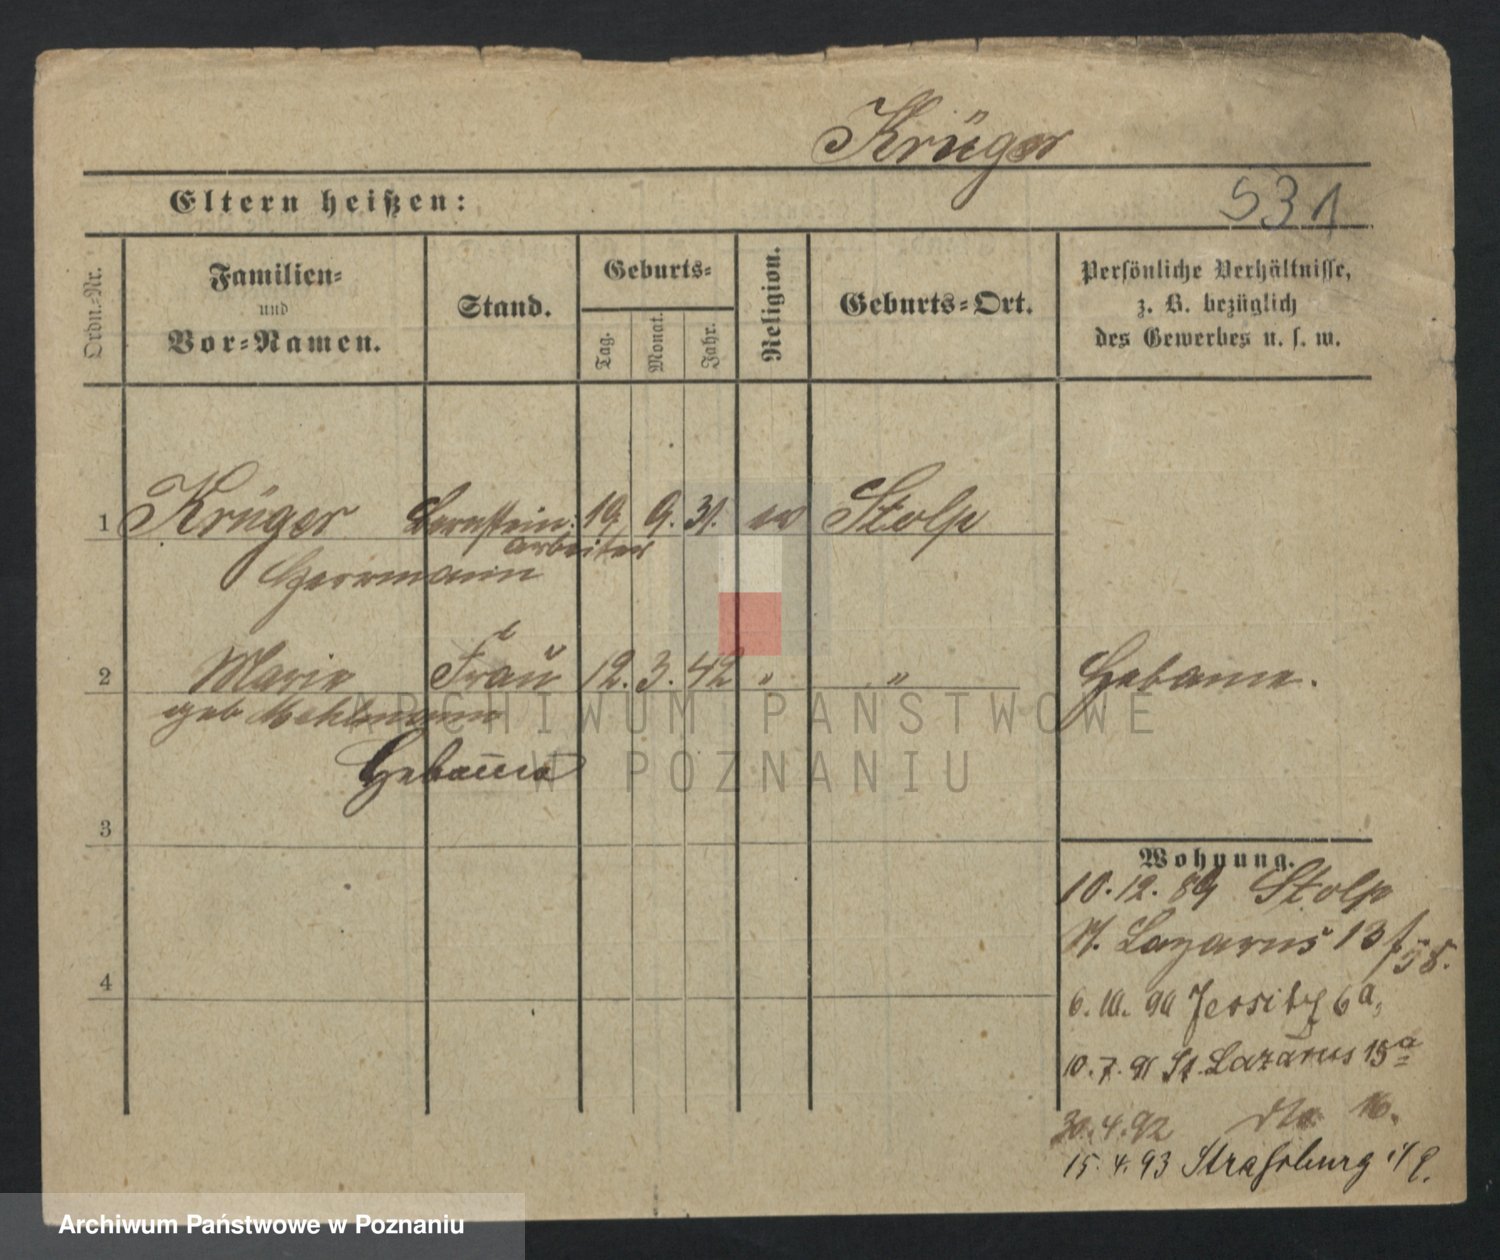 Krüger
531
Eltern heißen:
Ordn.-Nr.
Familien-
und
Vor-Namen.
Stand.
Geburts-
Tag.
Monat.
Jahr.
Religion.
Geburts-Ort.
Persönliche Verhältnisse,
z. B. bezüglich
des Gewerbes u. s. w.
1 Krüger Bernstein: 19 9. 31. ev Stolp
arbeiter
Herrmann
2 Marie Frau 12. 3. 42 " " Hebame.
geb Mehlmann
Hebame
3
Wohnung.
10. 12. 89 Stolp
St. Lazarus 13 f 58.
4
6. 10. 90 Jersitz 6a,
10. 7. 91 St. Lazarus 15a
30. 4. 92 16.
15. 4. 93 Straßburg
ARCHIWUM PAŃSTWOWE
W POZNANIU
Archiwum Państwowe w Poznaniu